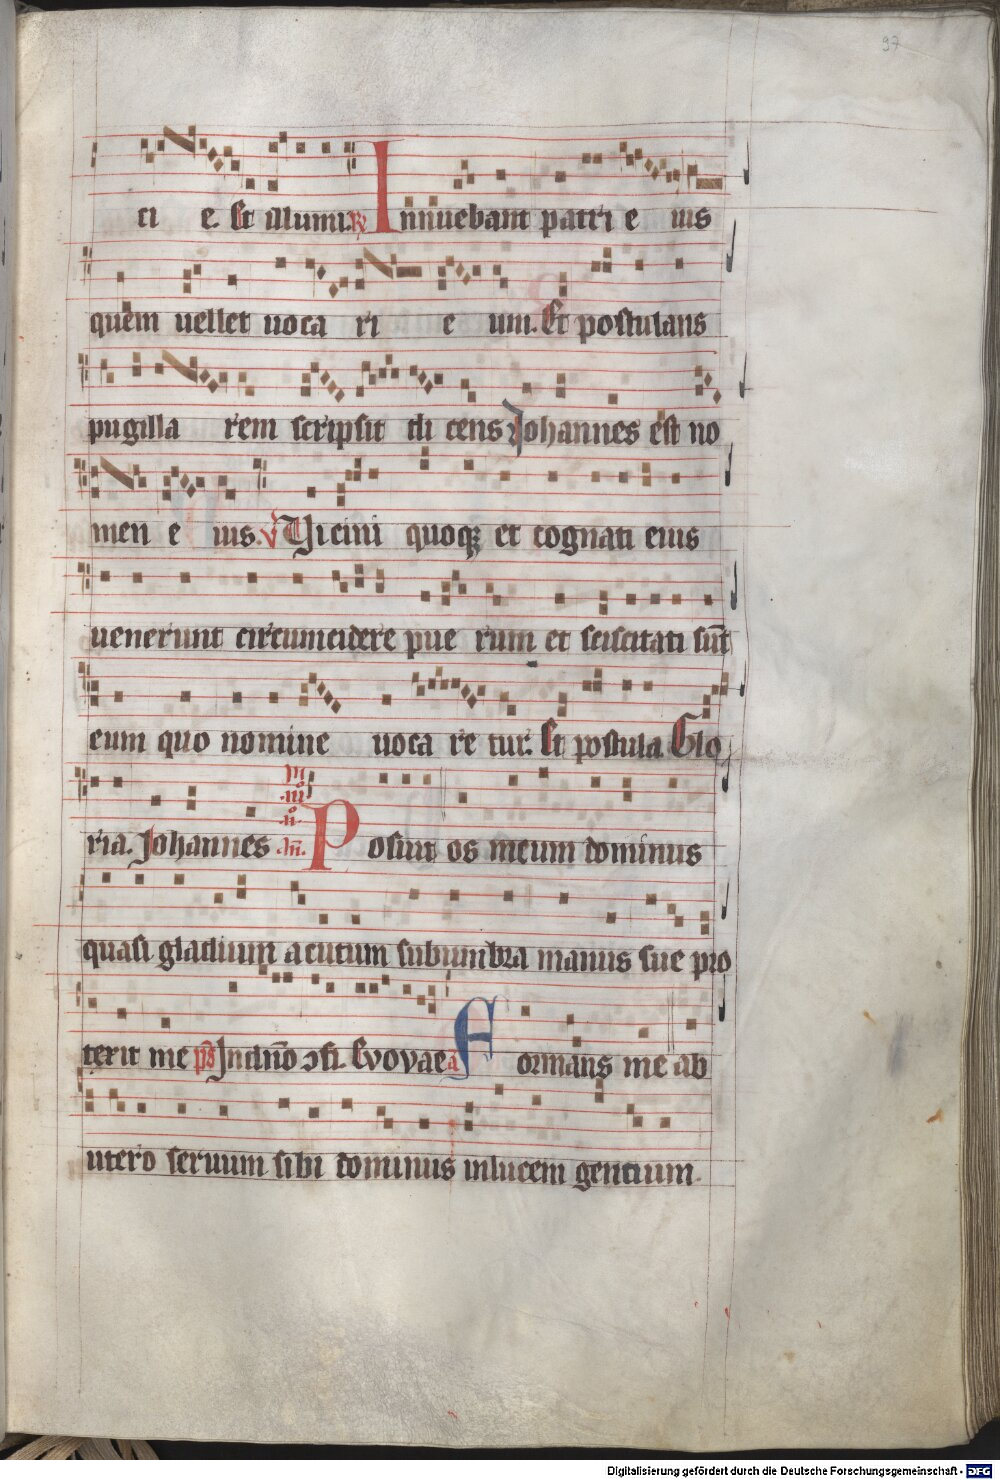 97
ci e. Et illumi. R Innuebant patri e ius
quem uellet uoca ri e um. Et postulans
pugilla rem scripsit di cens Johannes est no
men e ius. V Vicini quoqȝ et cognati eius
uenerunt circumcidere pue rum et sciscitati sūt
eum quo nomine uoca re tur. Et postula. Glo
ria. Johannes Posuit os meum dominus
quasi gladium acutum sub umbra manus sue pro
texit me ps Jn dn̄o ↄfi. Evovae a Formans me ab
utero seruum sibi dominus in lucem gentium.
Digitalisierung gefördert durch die Deutsche Forschungsgemeinschaft - DFG